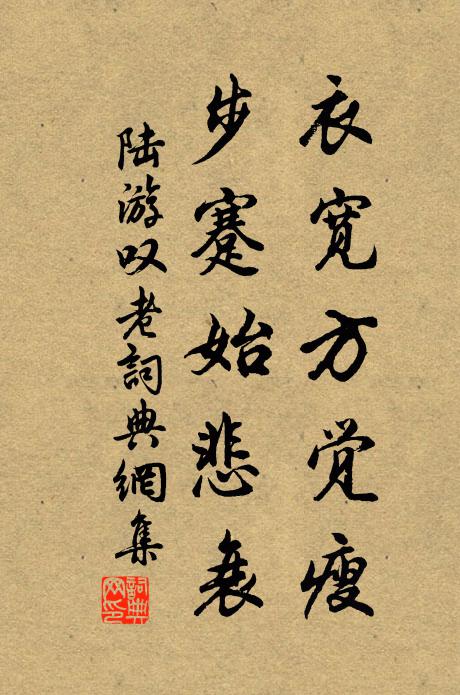 衣宽方觉瘦
步蹇始悲衰
陆游叹老詞典網集
詞典网印